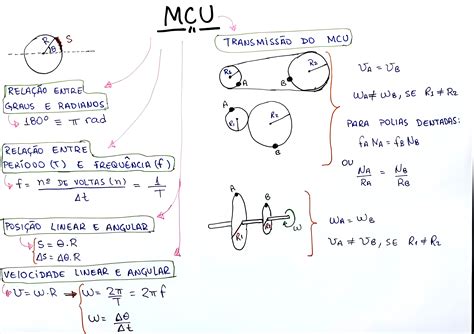 MCU
R
θ
S
RELAÇÃO ENTRE
GRAUS E RADIANOS
180° = π rad
RELAÇÃO ENTRE
PERÍODO (T) E FREQUÊNCIA (f)
f = nº DE VOLTAS (n) / Δt = 1 / T
POSIÇÃO LINEAR E ANGULAR
S = θ.R
ΔS = Δθ.R
VELOCIDADE LINEAR E ANGULAR
v = ω.R → ω = 2π / T = 2πf
ω = Δθ / Δt
TRANSMISSÃO DO MCU
A
R1
B
R2
A
R1
B
R2
vA = vB
ωA ≠ ωB, SE R1 ≠ R2
PARA POLIAS DENTADAS:
fA NA = fB NB
OU
NA / RA = NB / RB
A
B
R1
R2
ω
ωA = ωB
vA ≠ vB, SE R1 ≠ R2